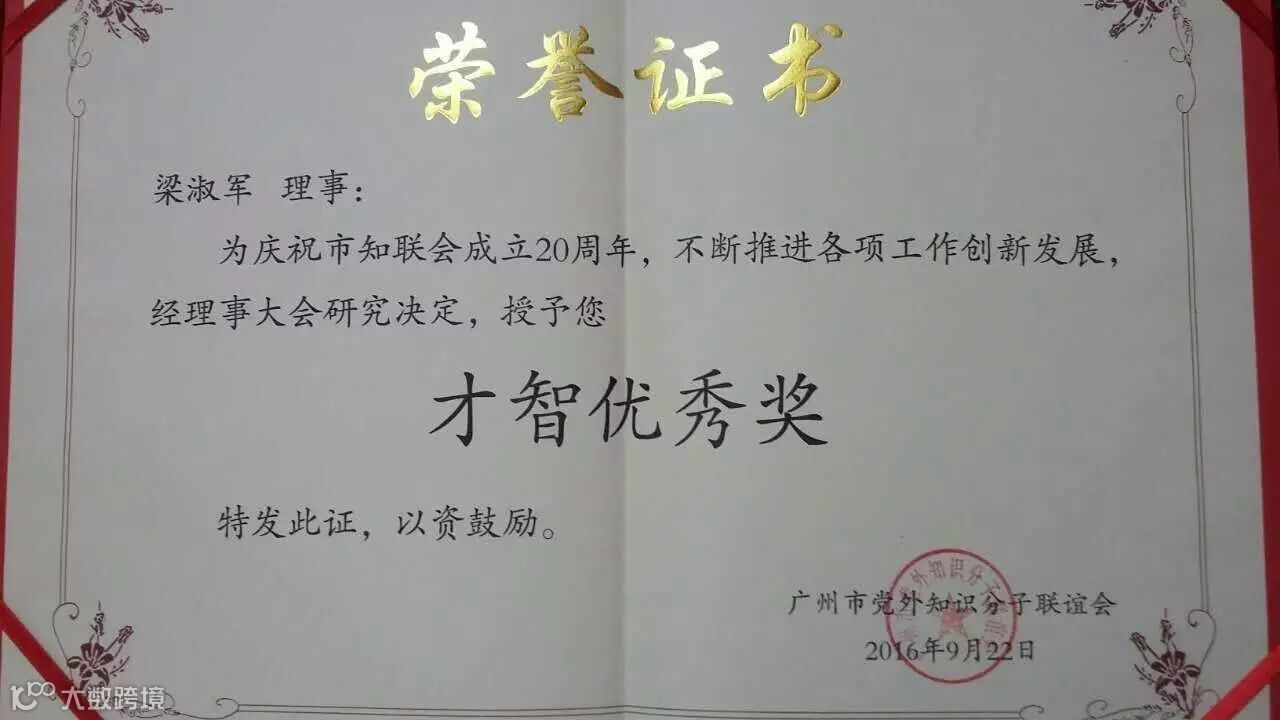 荣誉证书
梁淑军 理事：
为庆祝市知联会成立20周年，不断推进各项工作创新发展，
经理事大会研究决定，授予您
才智优秀奖
特发此证，以资鼓励。
广州市党外知识分子联谊会
2016年9月22日
大数跨境